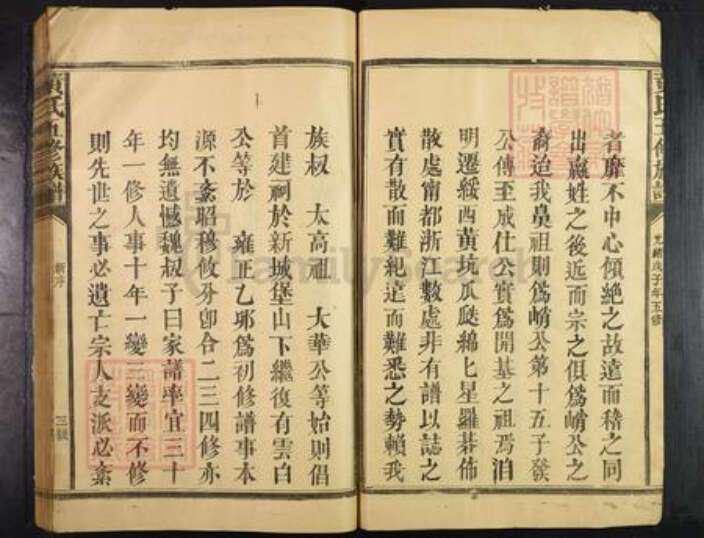 黃氏五修族譜
光緒戊子年五修
者靡不中心傾絶之故遠而稽之同
出嬴姓之後近而宗之俱爲峭公之
裔迨我鼻祖則爲峭公第十五子發
公傳至成仕公實爲開基之祖焉洎
明遷綏西黃坑瓜瓞綿七星羅碁佈
散處甯都浙江數處非有譜以誌之
實有散而難紀遠而難悉之勢賴我
族叔 太高祖 大華公等始則倡
首建祠於新城堡山下繼復有雲白
公等於 雍正乙卯爲初修譜事本
源不紊昭穆攸分卽合二三四修亦
均無遺憾魏叔子曰家譜率宜三十
年一修人事十年一變三變而不修
則先世之事必遺亡宗人支派必紊
黃氏五修族譜
新序
三
FamilySearch